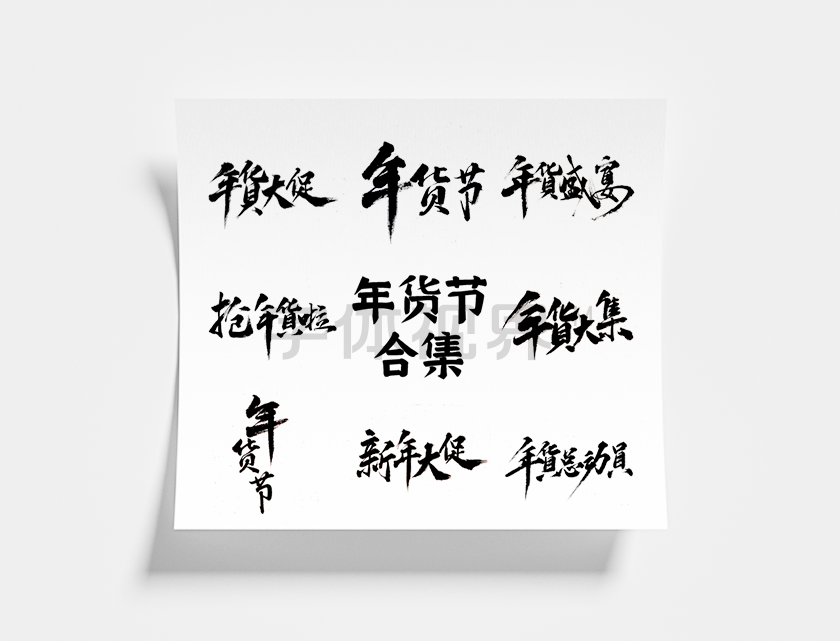 年货大促
年货节
年货盛宴
抢年货啦
年货节
合集
年货大集
年货节
新年大促
年货总动员
字体视界